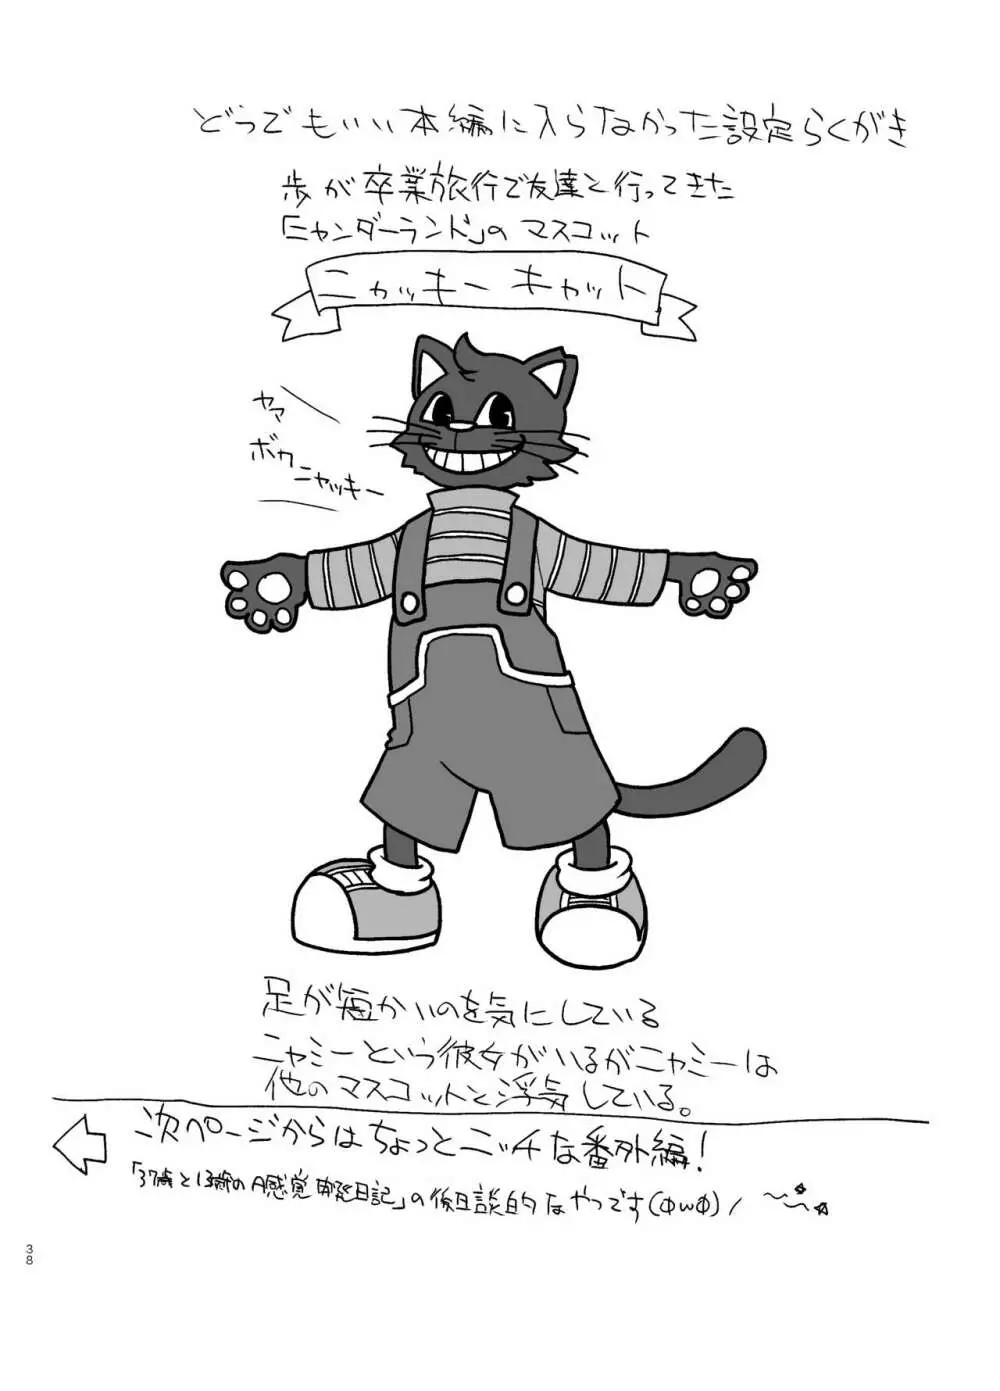 どうでもいい本編に入らなかった設定らくがき
歩が卒業旅行で友達と行ってきた
「ニャンダーランド」のマスコット
ニャッキーキャット
ヤァ
ボク
ニャッキー
足が短かいのを気にしている
ニャミーという彼女がいるがニャミーは
他のマスコットと浮気している。
次ページからはちょっとニッチな番外編！
38